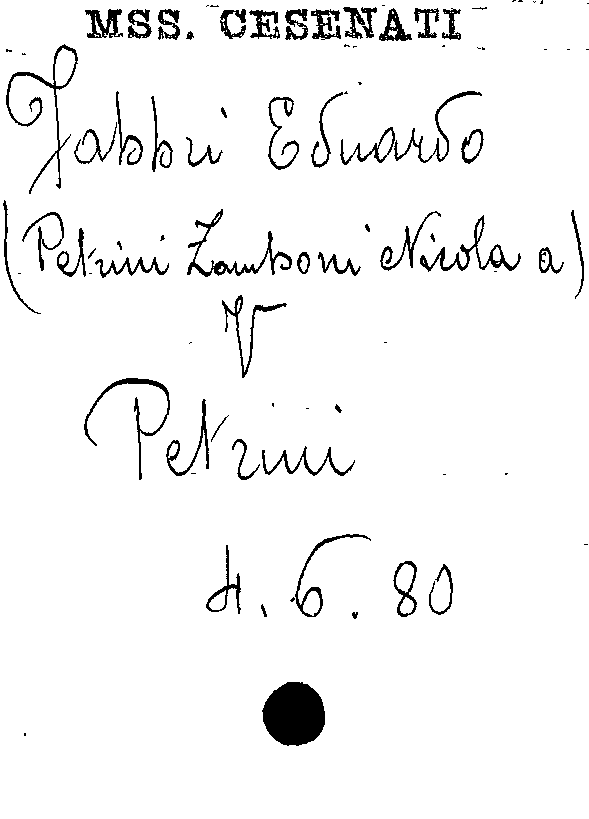 MSS. CESENATI
Fabbri Eduardo
(Petrini Zamboni Nicola a)
V
Petrini
4. 6. 80